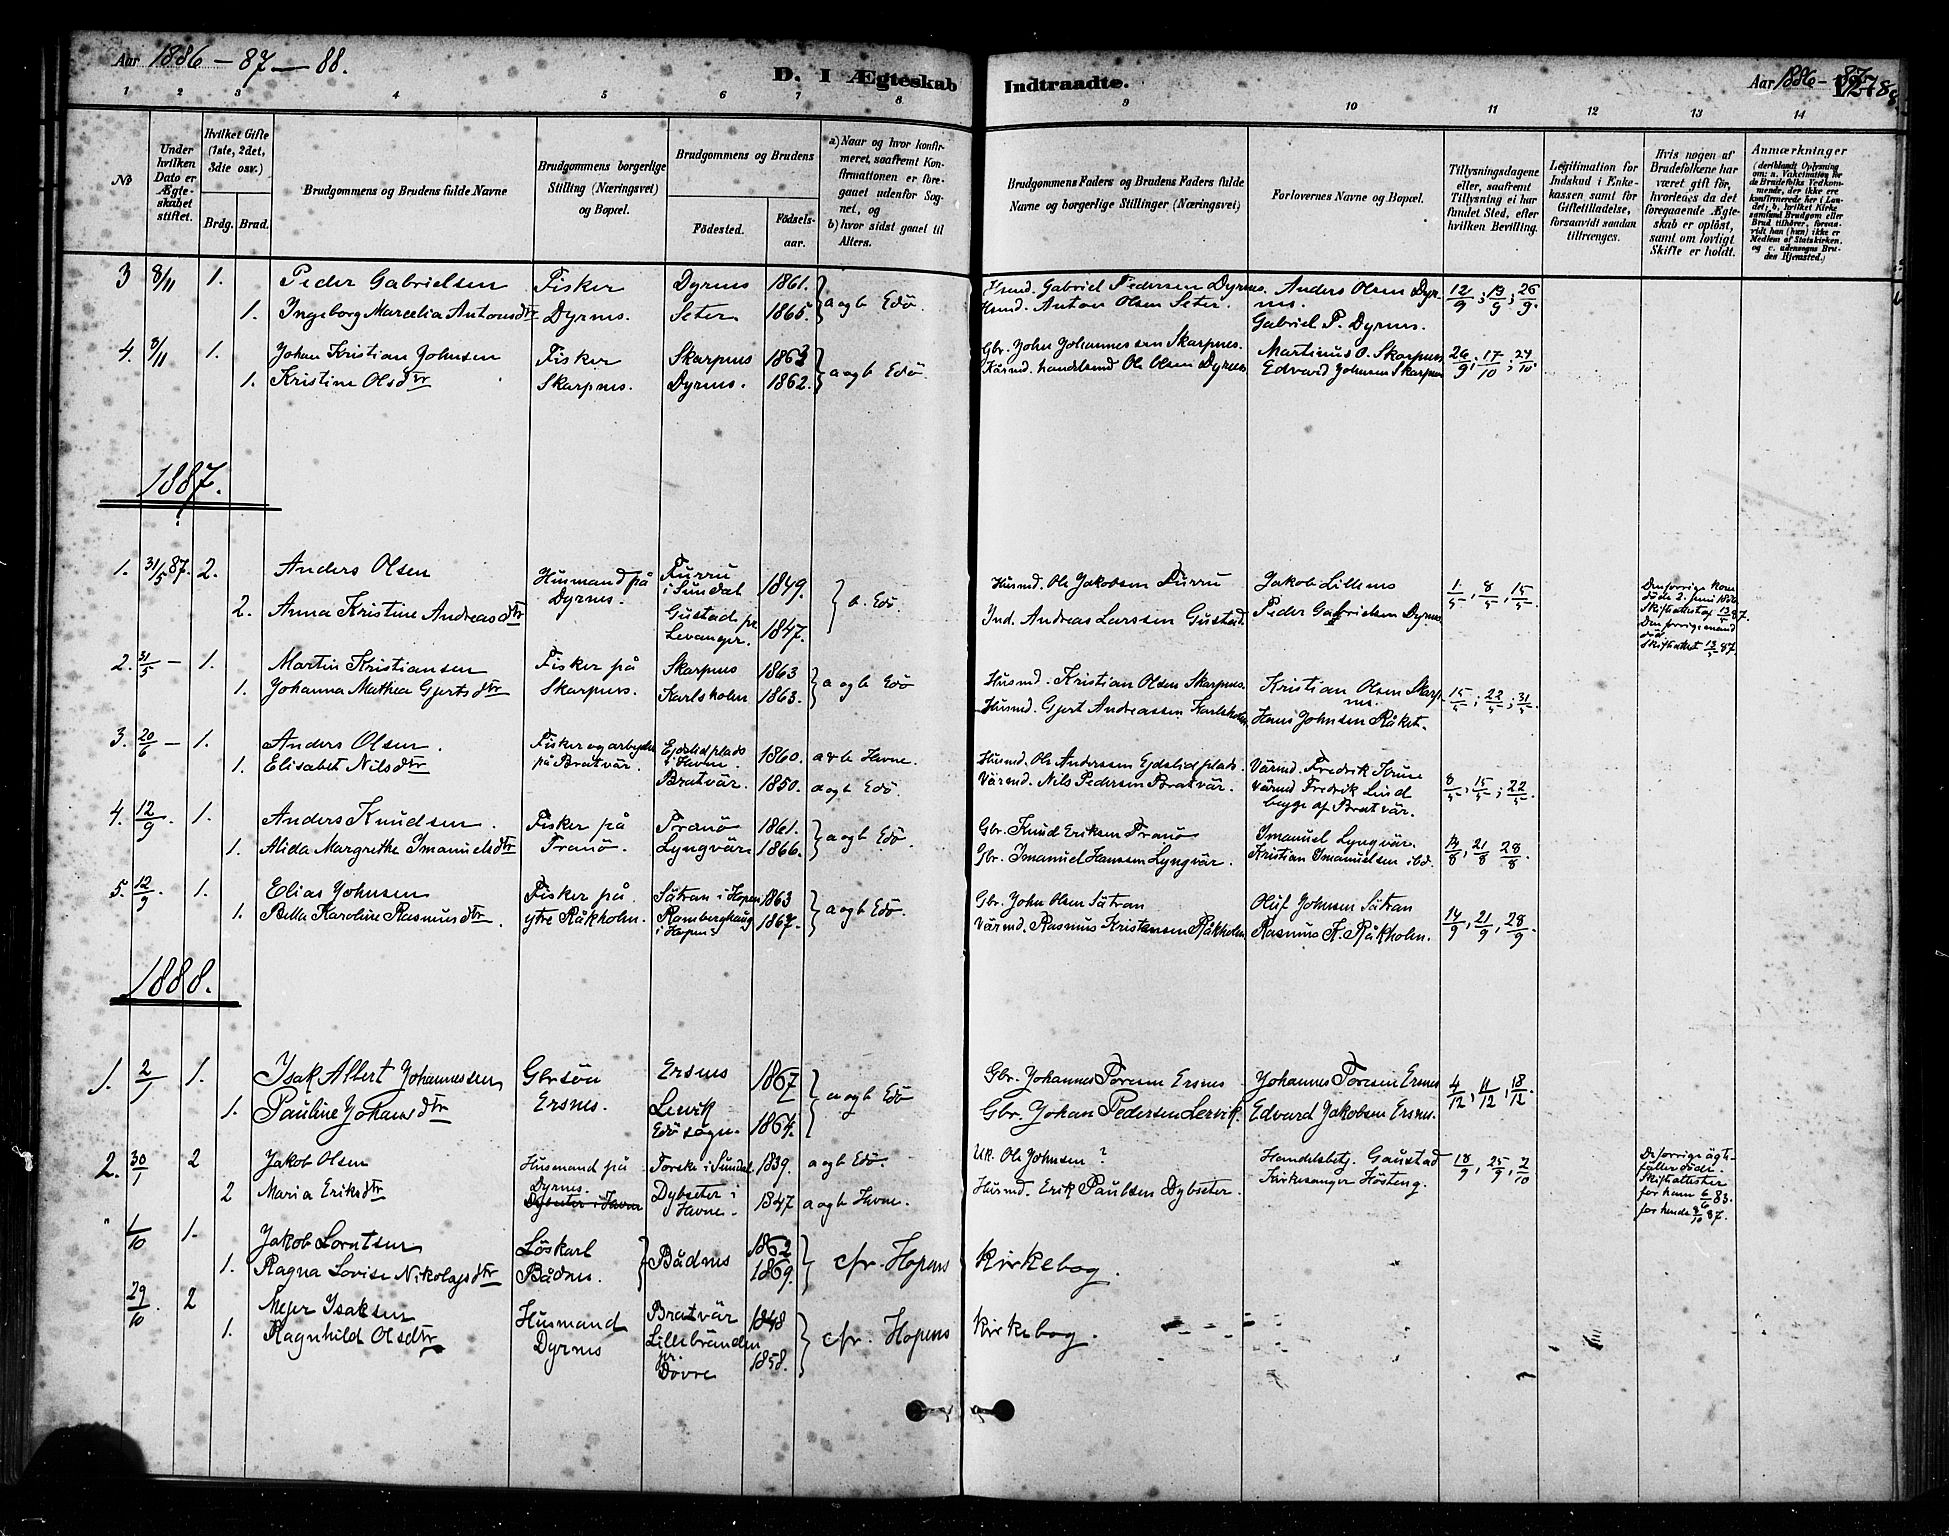 Aar 1886 – 87 – 88.
D. I Ægteskab Indtraadte.
Aar 1886 – 87 – 88
1 2 3 4 5 6 7 8 9 10 11 12 13 14
No
Under hvilken Dato er Ægteskabet stiftet.
Hvilket Gifte (1ste, 2det, 3die osv.)
Brdg. Brud.
Brudgommens og Brudens fulde Navne
Brudgommens borgerlige Stilling (Næringsvei) og Bopæl.
Brudgommens og Brudens
Födested. Födsels-aar.
a) Naar og hvor konfirmeret, saafremt Konfirmationen er foregaaet udenfor Sognet, og
b) hvor sidst gaaet til Alters.
Brudgommens Faders og Brudens Faders fulde Navne og borgerlige Stillinger (Næringsvei)
Forlovernes Navne og Bopæl.
Tillysningsdagene eller, saafremt Tillysning ei har fundet Sted, efter hvilken Bevilling.
Legitimation for Indskud i Enkekassen samt for Giftetilladelse, forsaavidt saadan tiltrænges.
Hvis nogen af Brudefolkene har været gift för, hvorledes da det foregaaende Ægteskab er oplöst, samt om lovligt Skifte er holdt.
Anmærkninger
(deriblandt Oplysning om: a. Vaccination for de Brudefolks Vedkommende, der ikke ere konfirmerede her i Landet; b. hvilket Kirkesamfund Brudgom eller Brud tilhörer, forsaavidt han (hun) ikke er Medlem af Statskirken, og c. udensogns Brudes Hjemsted.)
3 8/11 1. Peder Gabrielsen Fisker Dyrnes 1861. a og b Edö. Husmd. Gabriel Pedersen Dyrnes. Anders Olsen Dyrnes. 12/9; 19/9; 26/9.
1. Ingeborg Marcelia Antonsdtr Dyrnes. Seter. 1865. Husmd. Anton Olsen Seter. Gabriel P. Dyrnes.
4. 8/11 1. Johan Kristian Johnsen Fisker Skarpnes 1863 a og b Edö. Gbr. John Johannessen Skarpnes. Martinus O. Skarpnes 26/9; 17/10; 24/10.
1. Kristine Olsdtr Skarpnes. Dyrnes. 1862. handelsmd Ole Olsen Dyrnes Edvard Johnsen Skarpnes
1887.
1. 31/5 87. 2. Anders Olsen Husmand på Dyrnes. Furru i Sundal 1849. b. Edö. Husmd. Ole Jakobsen Furru Jakob Lillenes 1/5, 8/5, 15/5
2. Anna Kristine Andreasdtr Gustad pr Levanger. 1847. Ind. Andreas Larssen Gustad. Peder Gabrielsen Dyrnes
Den forrige kone døde 2. juni 1886 Skifteattest af 13/5 87. Den forrige mand død Skifteattest 13/5 87.
2. 31/5 – 1. Martin Kristiansen Fisker på Skarpnes 1863 a og b Edö Husmd. Kristian Olsen Skarpnes. Kristian Olsen Skarpnes. 15/5; 22/5; 31/5.
1. Johanna Mathea Gjertsdtr Skarpnes. Karlsholm 1863. Husmd. Gjert Andreassen Karlsholm Hans Johnsen Råket.
3. 20/6 – 1. Anders Olsen. Fisker og arbeyder på Bratvär. Ejdslidplads i Havne. 1860. a & b Havne. Husmd. Ole Anderssen Ejdslidplads. Värmd. Fredrik
1. Elisabet Nilsdtr Bratvär. 1850. a og b Edö. Värmd. Nils Pedersen Bratvär. Värmd Fredrik Lind begge af Bratvär. 8/5, 15/5; 22/5
4. 12/9. 1. Anders Knudsen. Fisker på Tranö. Tranö 1861. a og b Edö. Gbr. Knud Eriksen Tranö Imanuel Lyngvär. 14/8, 21/8 28/8.
1. Alida Margrethe Imanuelsdtr Lyngvär 1866. Gbr. Imanuel Hanssen Lyngvär. Kristian Imanuelsen ibd.
5. 12/9. 1. Elias Johnsen Fisker på Sätran i Hopen 1863 a og b Edö. Gbr. John Olsen Sätran Oluf Johnsen Sätran
1. Bella Karoline Rasmusdtr. ytre Råkholm. Ramberghaug i Hopen 1867. Värmd. Rasmus Kristensen Råkholm Rasmus K. Råkholm. 14/9, 21/9, 28/9.
1888.
1. 2/1 1. Isak Albert Johannessen Gbrsön Ersnes 1867 a og b Edö Gbr. Johannes Toresen Ersnes Johannes Toresen Ersnes 4/12, 11/12, 18/12.
1. Pauline Johansdtr Ersnes. Lervik Edö sogn. 1864. Gbr. Johan Pedersen Lervik. Edvard Jakobsen Ersnes.
2. 30/1 2 Jakob Olsen Husmand på Dyrnes. Torske i Sundal 1839. a og b Edö. Uk. Ole Johnsen? Handelsbetj. Gaustad 18/9, 25/9, 2/10
2 Maria Eriksdtr Dybseter i Havne Dybseter i Havne. 1847 a og b Havne. Husmd. Erik Paulsen Dybseter. Kirkesanger Hösteng.
De forrige ägtefäller döde. Skifteattester for ham 6/6 83. for hende 8/10 87.
" 1/10 1. Jakob Lorntsen Löskarl Bådnes 1862 cfr. Hopens kirkebog.
1. Ragna Lovise Nikolajsdtr Bådnes. 1869.
29/10. 2 Mejer Isaksen Husmand Bratvär 1848 cfr. Hopens kirkebog.
1. Ragnhild Olsdtr Dyrnes Lillebränden pr Dovre 1858.